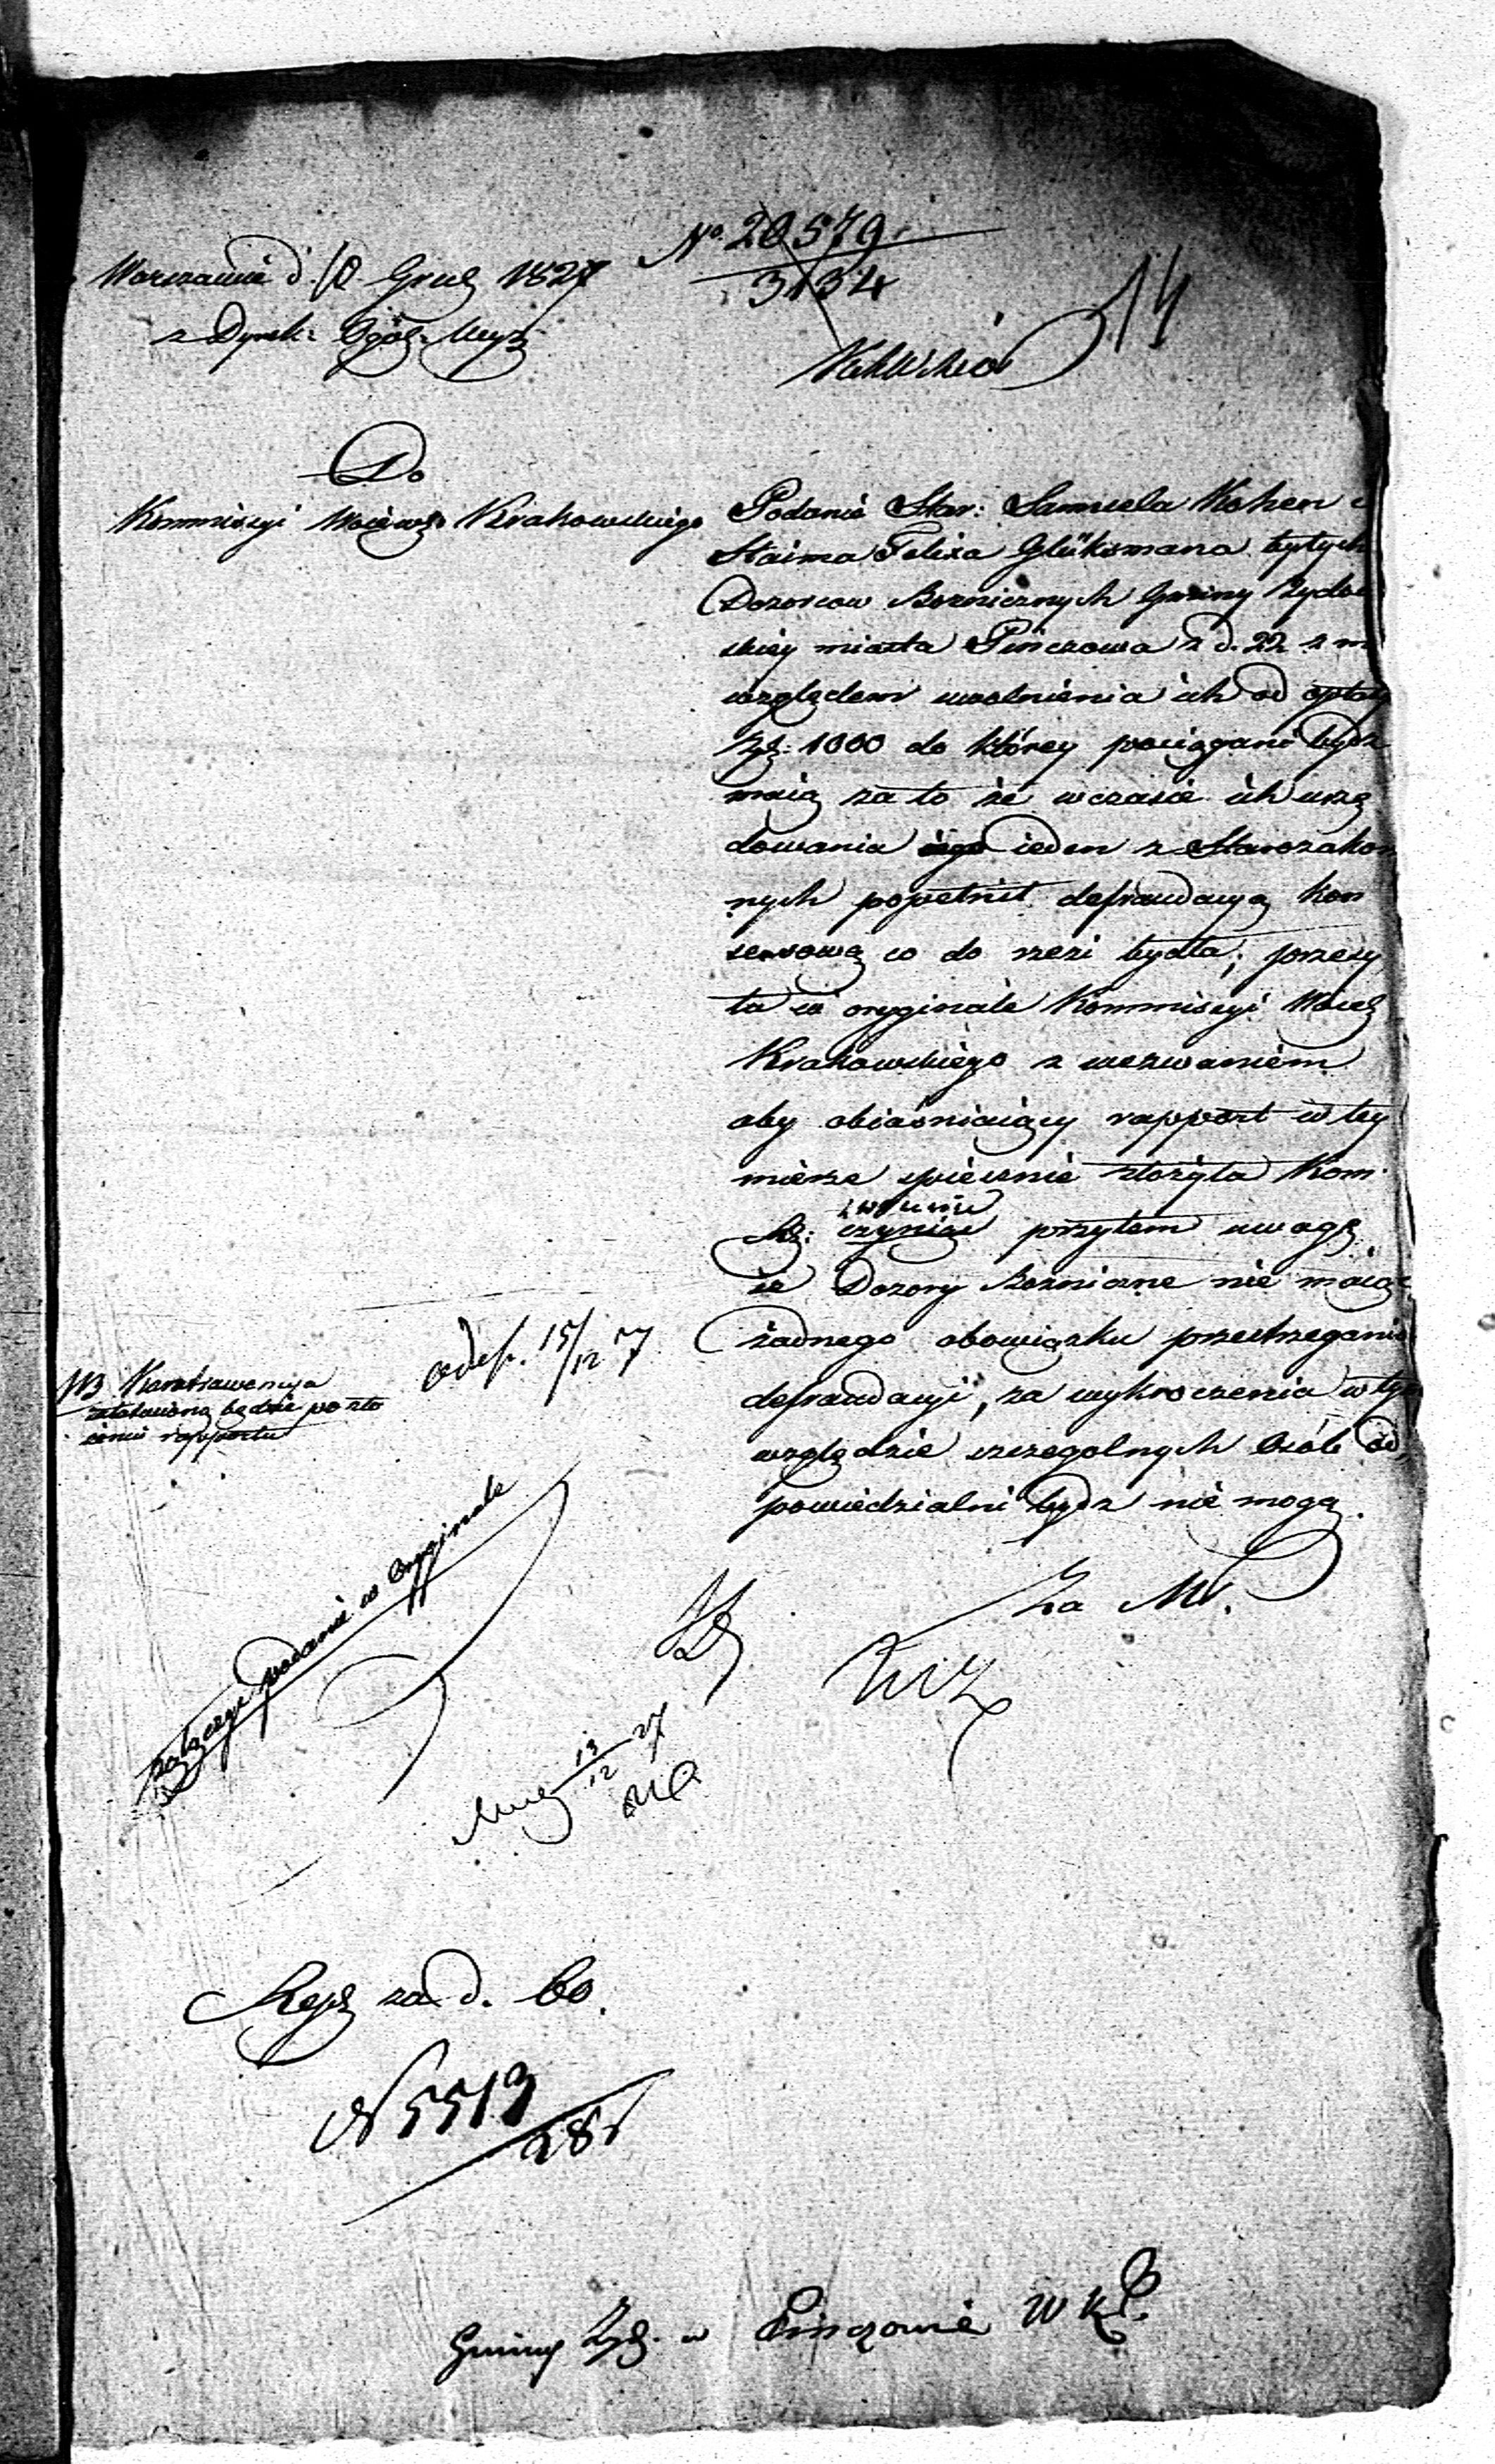 Warszawa d. 10 Grud 1827
z Dyrek: Ogól:
No 20579
3134
14
Do
Kommissyi Wojew. Krakowskiego
Podanie Star: Samuela Kohen i
Haima Felixa Glüksmana bytych
Dozorcow Bozniczných Gminy Żydow
skiey miasta Pinczowa z d. 22 z m
względem uwolnienia ich od opłaty
Złp: 1000 do którey pociągani bydz
maią za to że w czasie ich urzę
dowania ieden z Starozakon
nych popełnił defraudacyą kon
sensową co do rzezi bydła; przesy
ła w oryginale Kommissyi Wojew
Krakowskiego z wezwaniem
aby obiaśniaiący rapport w tey
mierze spiesznie złożyła Kom.
Rz: czyniąc przytem uwagę
że Dozory Bożniczne nie maiąc
żadnego obowiązku przestrzegania
defraudacyi, za wykroczenia w tym
względzie szczegolnych osób od,
powiedzialni bydz nie mogą.
Za Mi.
odesp. 15/12 27
NB Konstrawencya
załatwiona będzie po zło
żeniu rapportu
załącza podanie w Oryginale
13/12 27
Rep zad. Co.
N 5513
281
Gminy Żyd. w Pinczowie W K P.